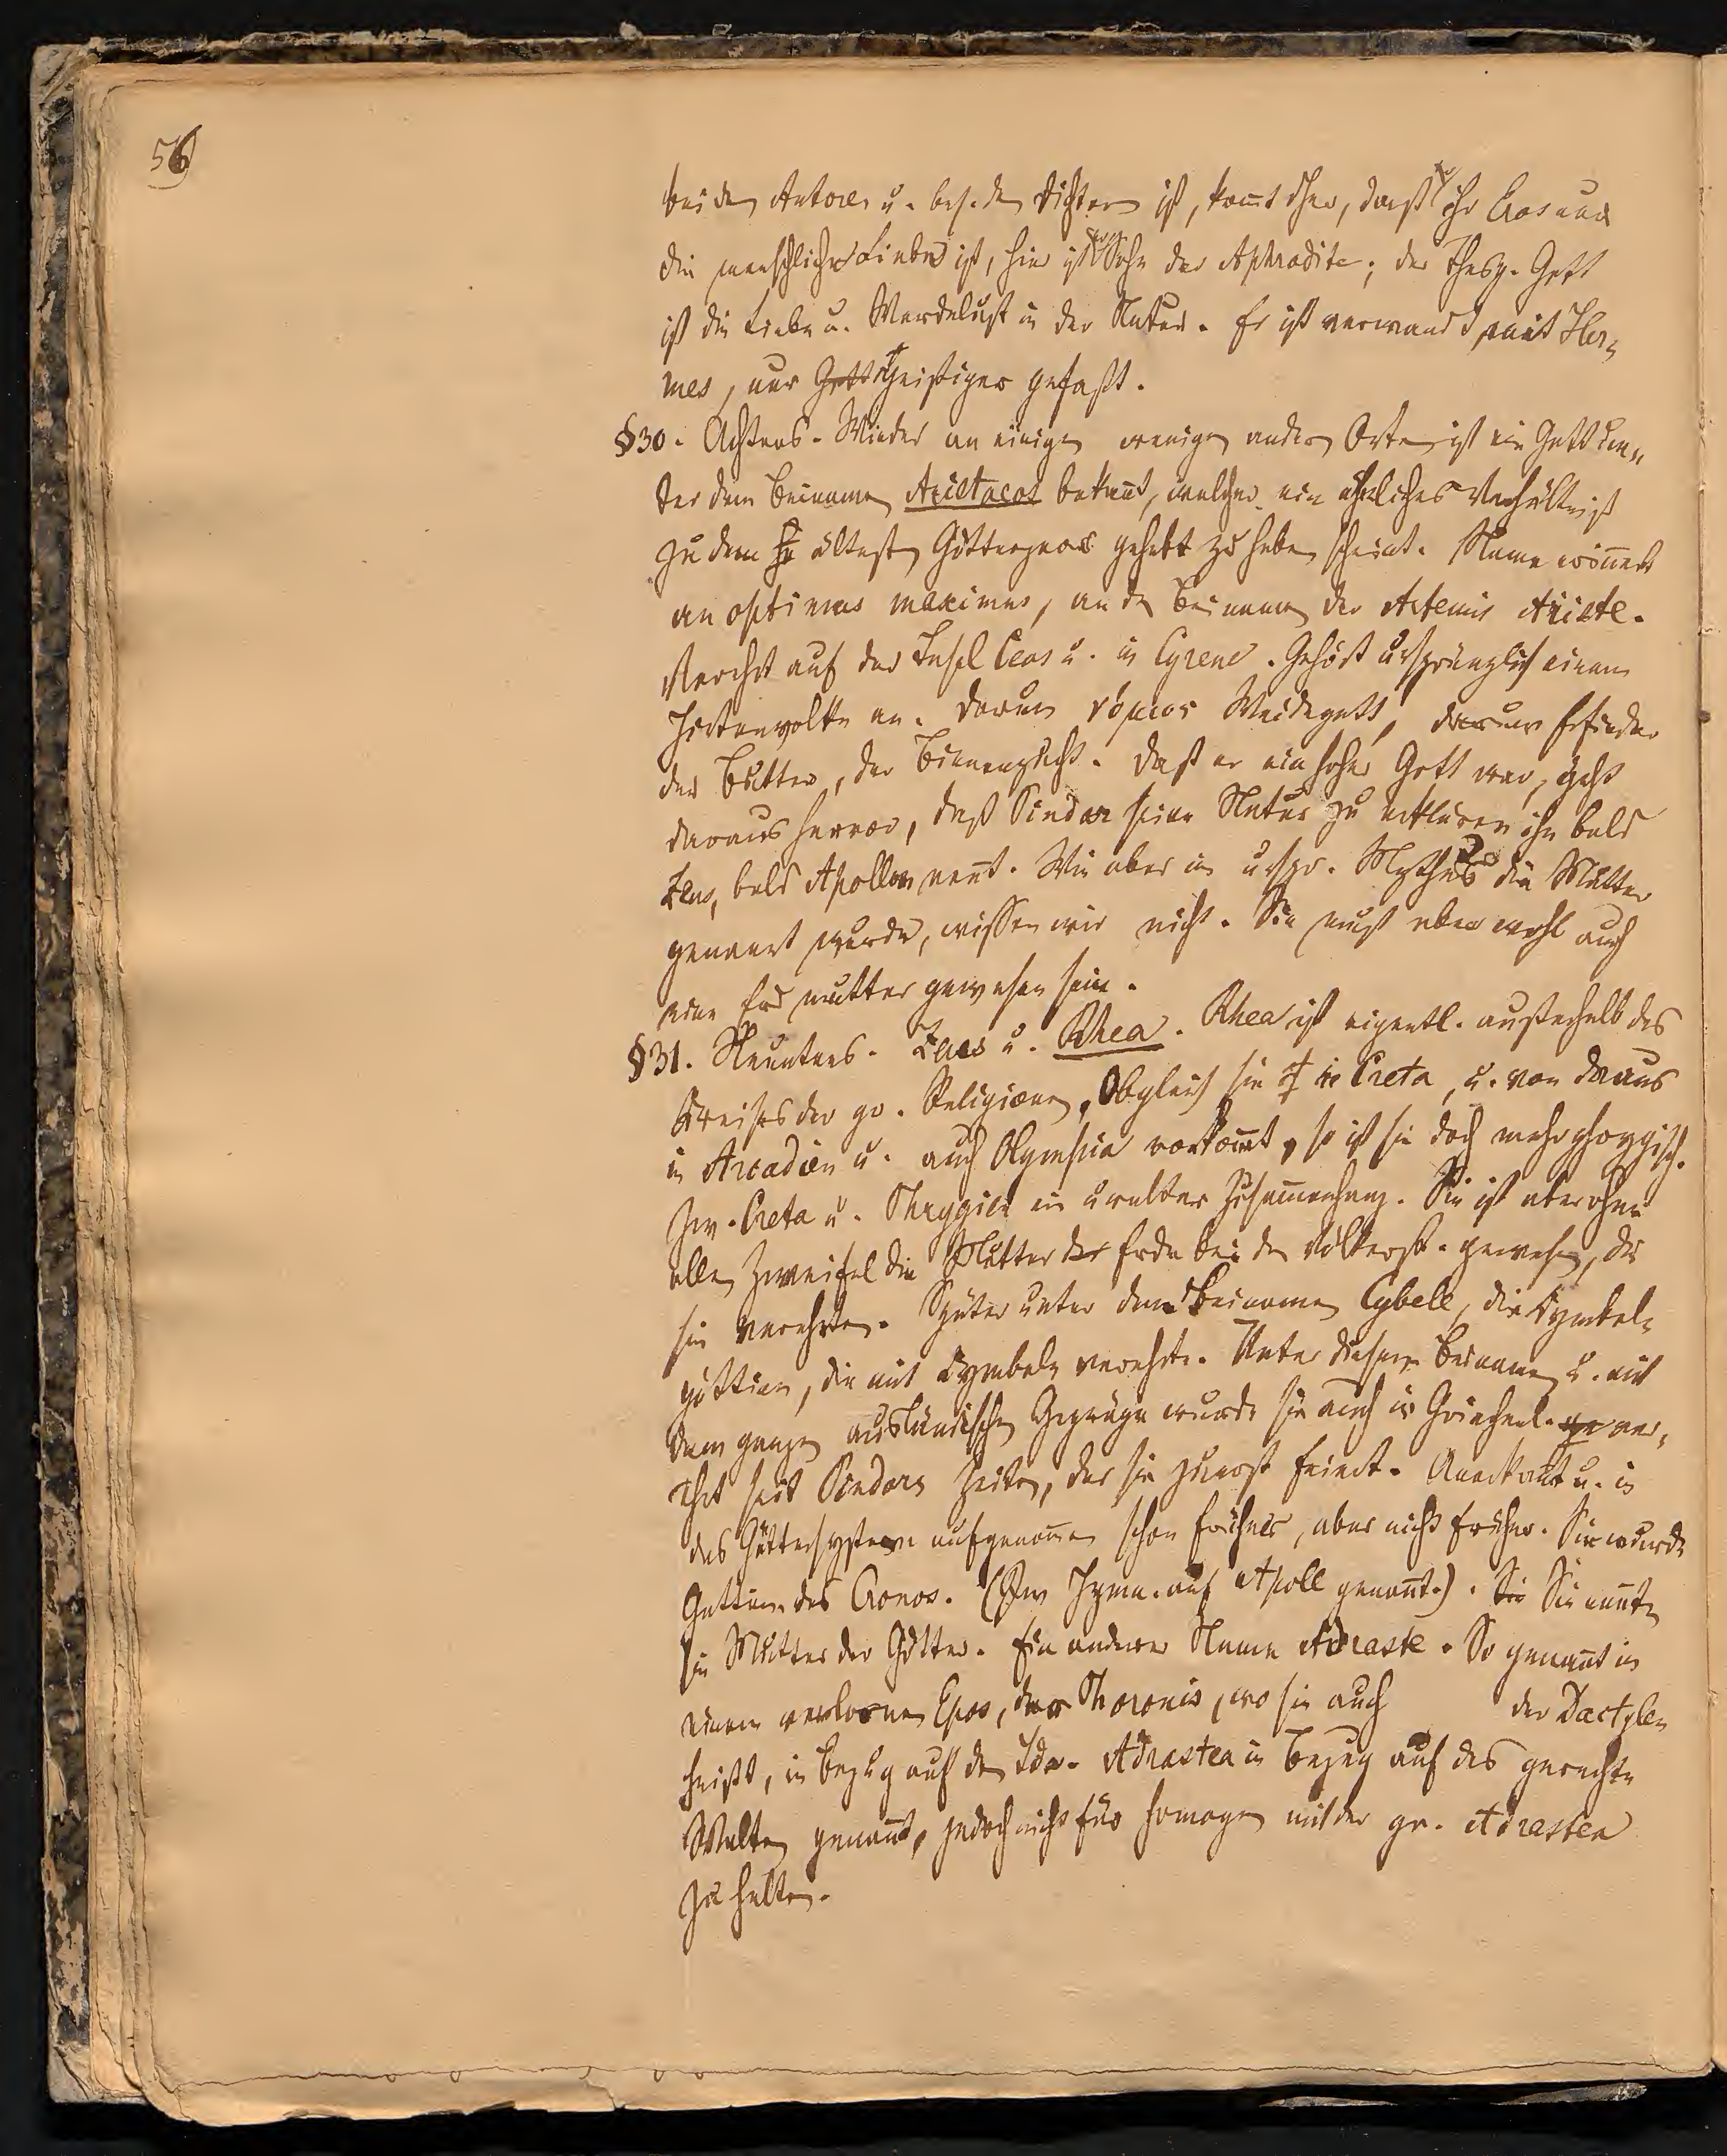 56
bei den Autoren u. bes. den Dichtern ist, kom̄t dher, daß ihr Eros nur
die menschliche Liebe ist, hier ist Sohn der Aphrodite; der Thesp. Gott
ist die Liebe u. Werdelust in der Natur. Er ist verwand mit Her=
mes, nur geistiger gefaßt.
§30. Achtens. Wieder an einigen wenigen andern Orten ist ein Gott un=
ter dem Beinamen Aristaeos bekan̄t, welcher ein ähnliches Verhältniß
zu dem ältesten Götterpaar gehabt zu haben scheint. Name erin̄ert
an optimus maximus, an den Beinamen der Artemis Ariste.
Verehrt auf der Insel Ceos u. in Cyrene. Gehört ursprünglich einem
Hirtenvolke an. Darum νόμιος Weidegott, darum Erfinder
der Butter, der Bienenzucht. Daß er ein hoher Gott war, geht
daraus hervor, daß Pindar seine Natur zu erklären ihn bald
Zeus, bald Apollon nen̄t. Wie aber im urspr. Mythus die Mutter
genannt wurde, wissen wir nicht. Sie muß aber wohl auch
eine Erdmutter gewesen sein.
§31. Neuntens. Zeus u. Rhea. Rhea ist eigentl. außerhalb des
Kreises der gr. Religionen, Obgleich sie in Creta, u. von daraus
in Arcadien u. auch Olympia vorkom̄t, so ist sie doch mehr phrygisch.
Zw. Creta u. Phrygien ein uralter Zusam̄enhang. Sie ist aber ohne
allen Zweifel die Mutter der Erde bei den Völkersch. gewesen, die
sie verehrten. Später unter dem Beinamen Cybele, die Cymbel=
göttinn, die mit Cymbeln verehrte. Unter diesem Beinamen u. mit
dem ganzen ausländischen Gepräge wurde sie auch in Griechenl. ver=
ehrt seit Pindars Zeiten, der sie zuerst feiert. Anerkan̄t u. in
das Göttersystem aufgenom̄en schon früher, aber nicht früher. Sie wurde
Gattinn des Cronos. (Im Hymn. auf Apoll genan̄t.). Sie nan̄ten
sie Mutter der Götter. Ein anderer Name Adraste. So genan̄t in
einem verlornen Epos, der Phoronis, wo sie auch der Dactylen
heißt, in Bezug auf den Ida. Adrastea in Bezug auf das gerechte
Walten genan̄t, jedoch nicht für homogen mit der gr. Adrastea
zu halten.